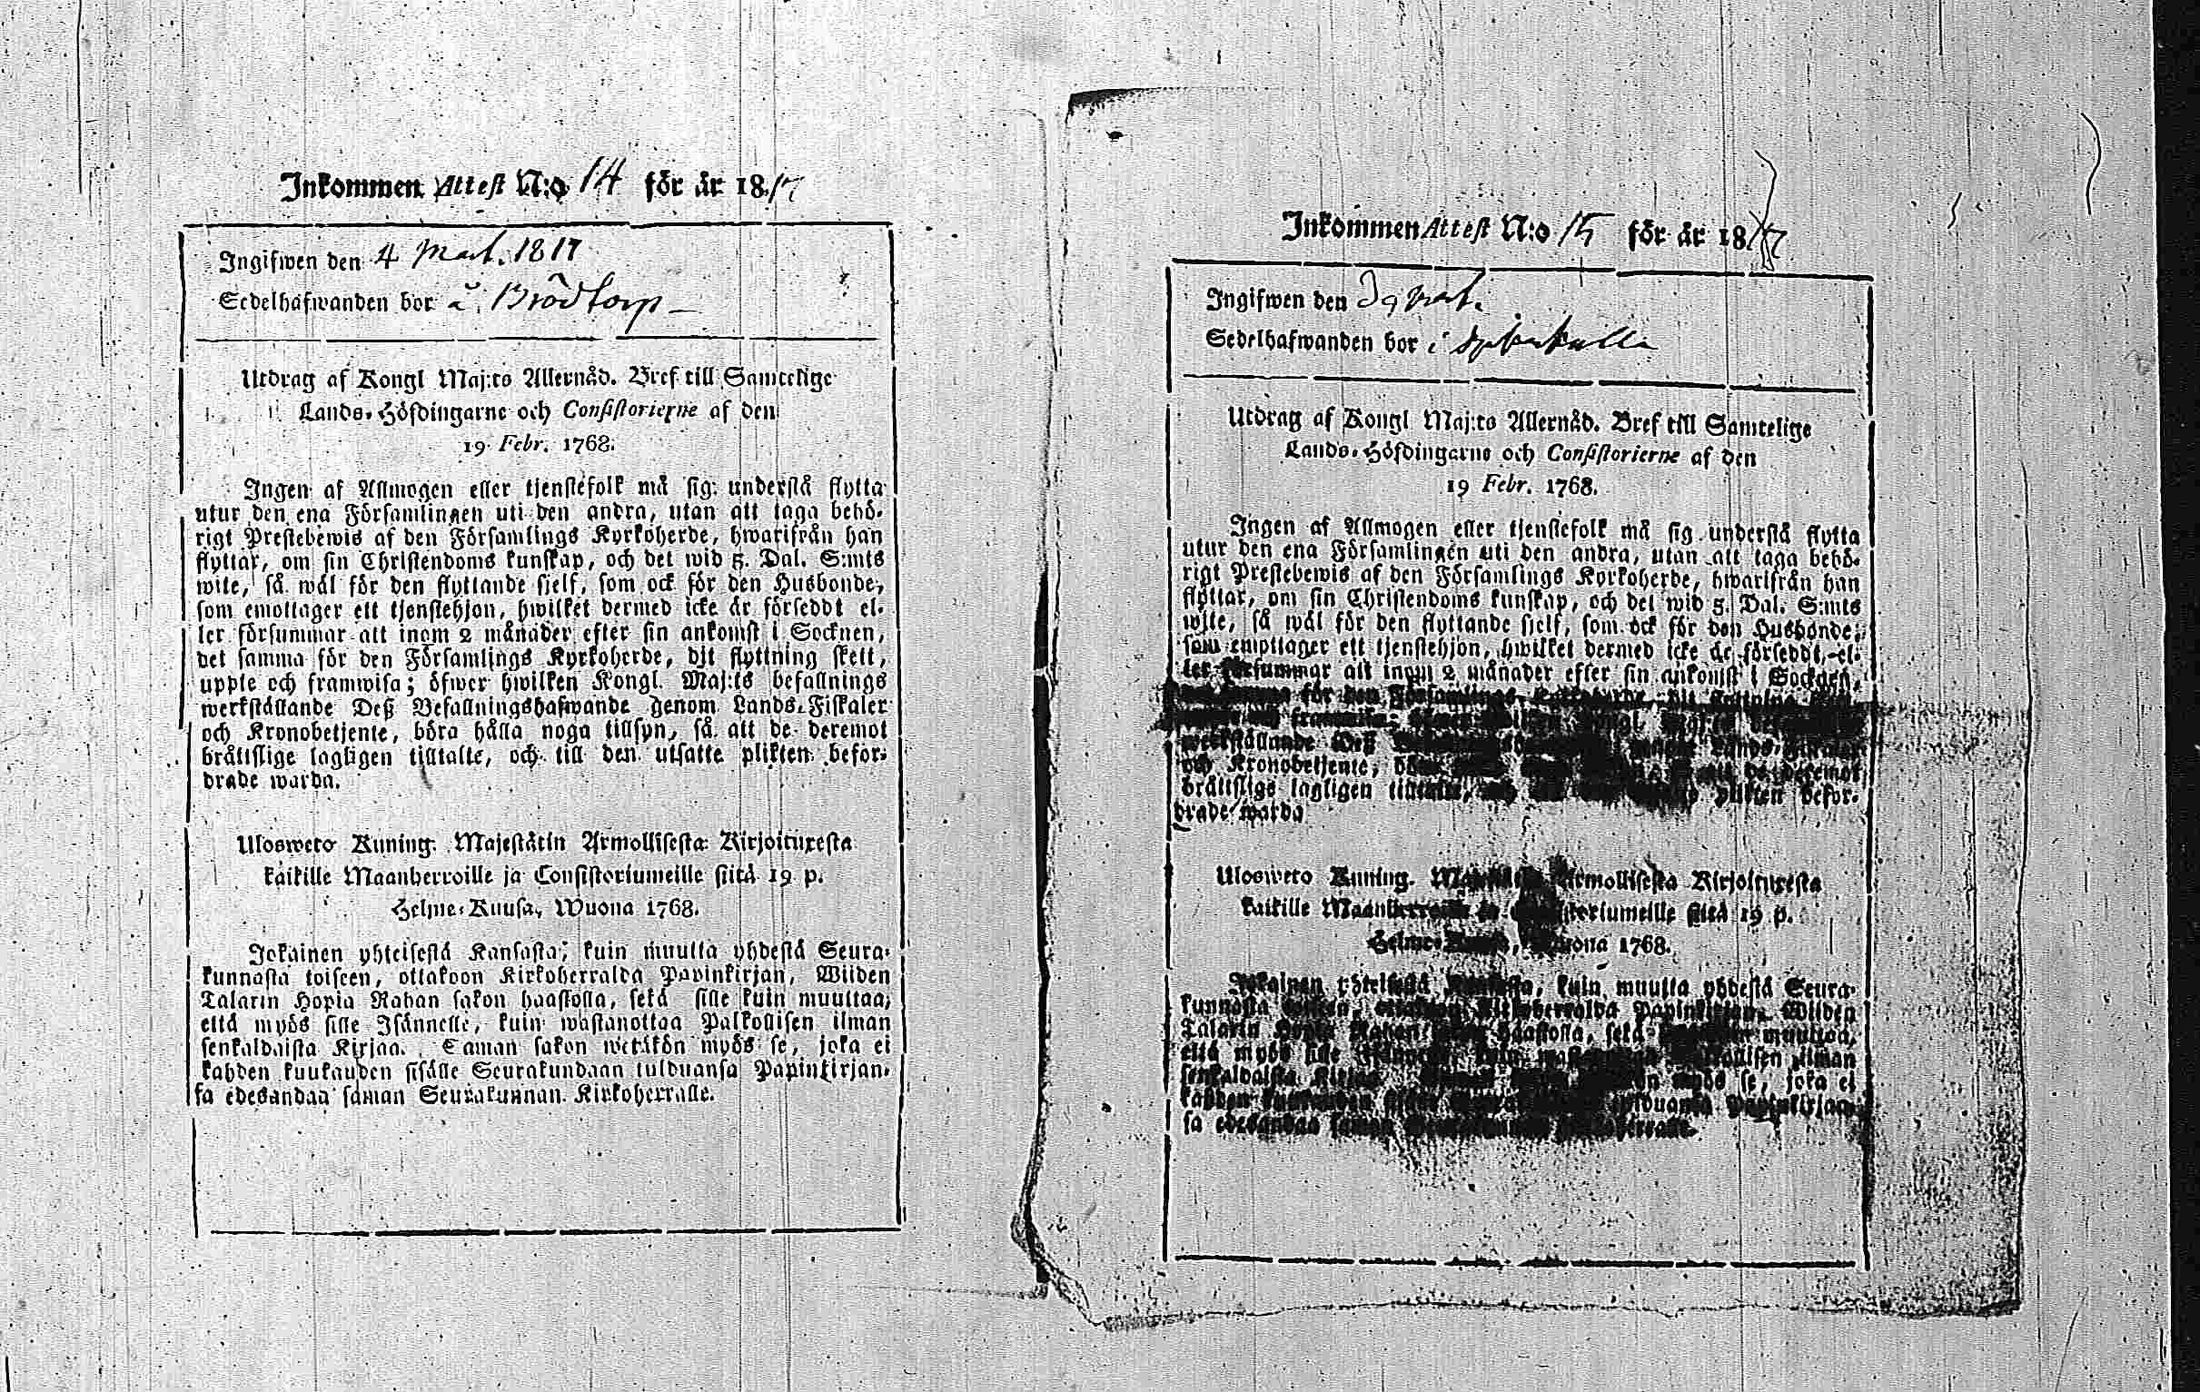 Inkommen Attest N:o 14 för år 1817
Ingifwen den 4 Mart. 1817
Sedelhafwanden bor å Brödtorp
Utdrag af Kongl Maj:ts Allernåd. Bref till Samtelige
Lands-Höfdingarne och Consistorierne af den
19 Febr. 1768.
Ingen af Allmogen eller tjenstefolk må sig understå flytta
utur den ena Församlingen uti den andra, utan att taga behö-
rigt Prestebewis af den Församlings Kyrkoherde, hwarifrån han
flyttar, om sin Christendoms kunskap, och det wid 5. Dal. S:mts
wite, så wäl för den flyttande sjelf, som ock för den Husbonde,
som emottager ett tjenstehjon, hwilket dermed icke är försedt el-
ler försummar att inom 2 månader efter sin ankomst i Socknen,
det samma för den Församlings Kyrkoherde, dit flyttning skett,
uppte och framwisa; öfwer hwilken Kongl. Maj:ts befallnings
werkställande Deß Befallningshafwande genom Lands-Fiskaler
och Kronobetjente, böra hålla noga tillsyn, så att de deremot
bråttslige lagligen tilltalte, och till den utsatte plikten befor-
drade warda.
Ulosweto Kuning. Majestätin Armollisesta Kirjoituxesta
kaikille Maanherroille ja Consistoriumeille siitä 19 p.
Helme-Kuusa, Wuona 1768.
Jokainen yhteisestä Kansasta, kuin muutta yhdestä Seura-
kunnasta toiseen, ottakoon Kirkoherralda Papinkirjan, Wiiden
Talarin Hopia Rahan sakon haastolla, sekä sille kuin muuttaa,
että myös sille Isännelle, kuin wastanottaa Palkollisen ilman
senkaldaista Kirjaa. Saman sakon wetäkön myös se, joka ei
kahden kuukauden sisälle Seurakundaan tulduansa Papinkirjan-
sa edesandaa saman Seurakunnan Kirkoherralle.
Inkommen Attest N:o 15 för år 1817
Ingifwen den Mart.
Sedelhafwanden bor i
Utdrag af Kongl Maj:ts Allernåd. Bref till Samtelige
Lands-Höfdingarne och Consistorierne af den
19 Febr. 1768.
Ingen af Allmogen eller tjenstefolk må sig understå flytta
utur den ena Församlingen uti den andra, utan att taga behö-
rigt Prestebewis af den Församlings Kyrkoherde, hwarifrån han
flyttar, om sin Christendoms kunskap, och det wid 5. Dal. S:mts
wite, så wäl för den flyttande sjelf, som ock för den Husbonde,
som emottager ett tjenstehjon, hwilket dermed icke är försedt, el-
ler försummar att inom 2 månader efter sin ankomst i Socknen,
för den Församlings
werkställande Deß
och Kronobetjente, böra deremot
bråttslige lagligen plikten befor-
drade warda
Ulosweto Kuning. Armollisesta Kirjoituxesta
kaikille siitä 19 p.
Wuona 1768.
Jokainen kuin muutta yhdestä Seura-
kunnasta Kirkoherralda Papinkirjan, Wiiden
Talarin Hopia Rahan haastolla, sekä muuttaa,
että myös sille ilman
senkaldaista Kirjaa. myös se, joka ei
kahden kuukauden Papinkirjan-
sa edesandaa saman